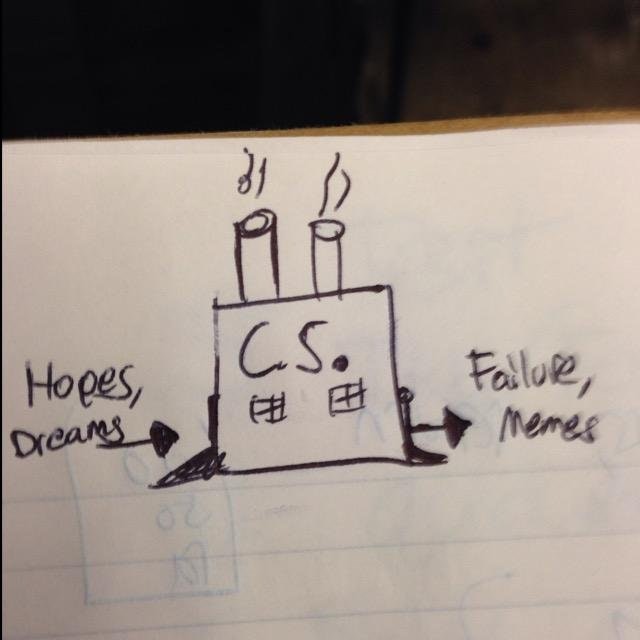 C.S.
Hopes,
Dreams
Failure,
Memes